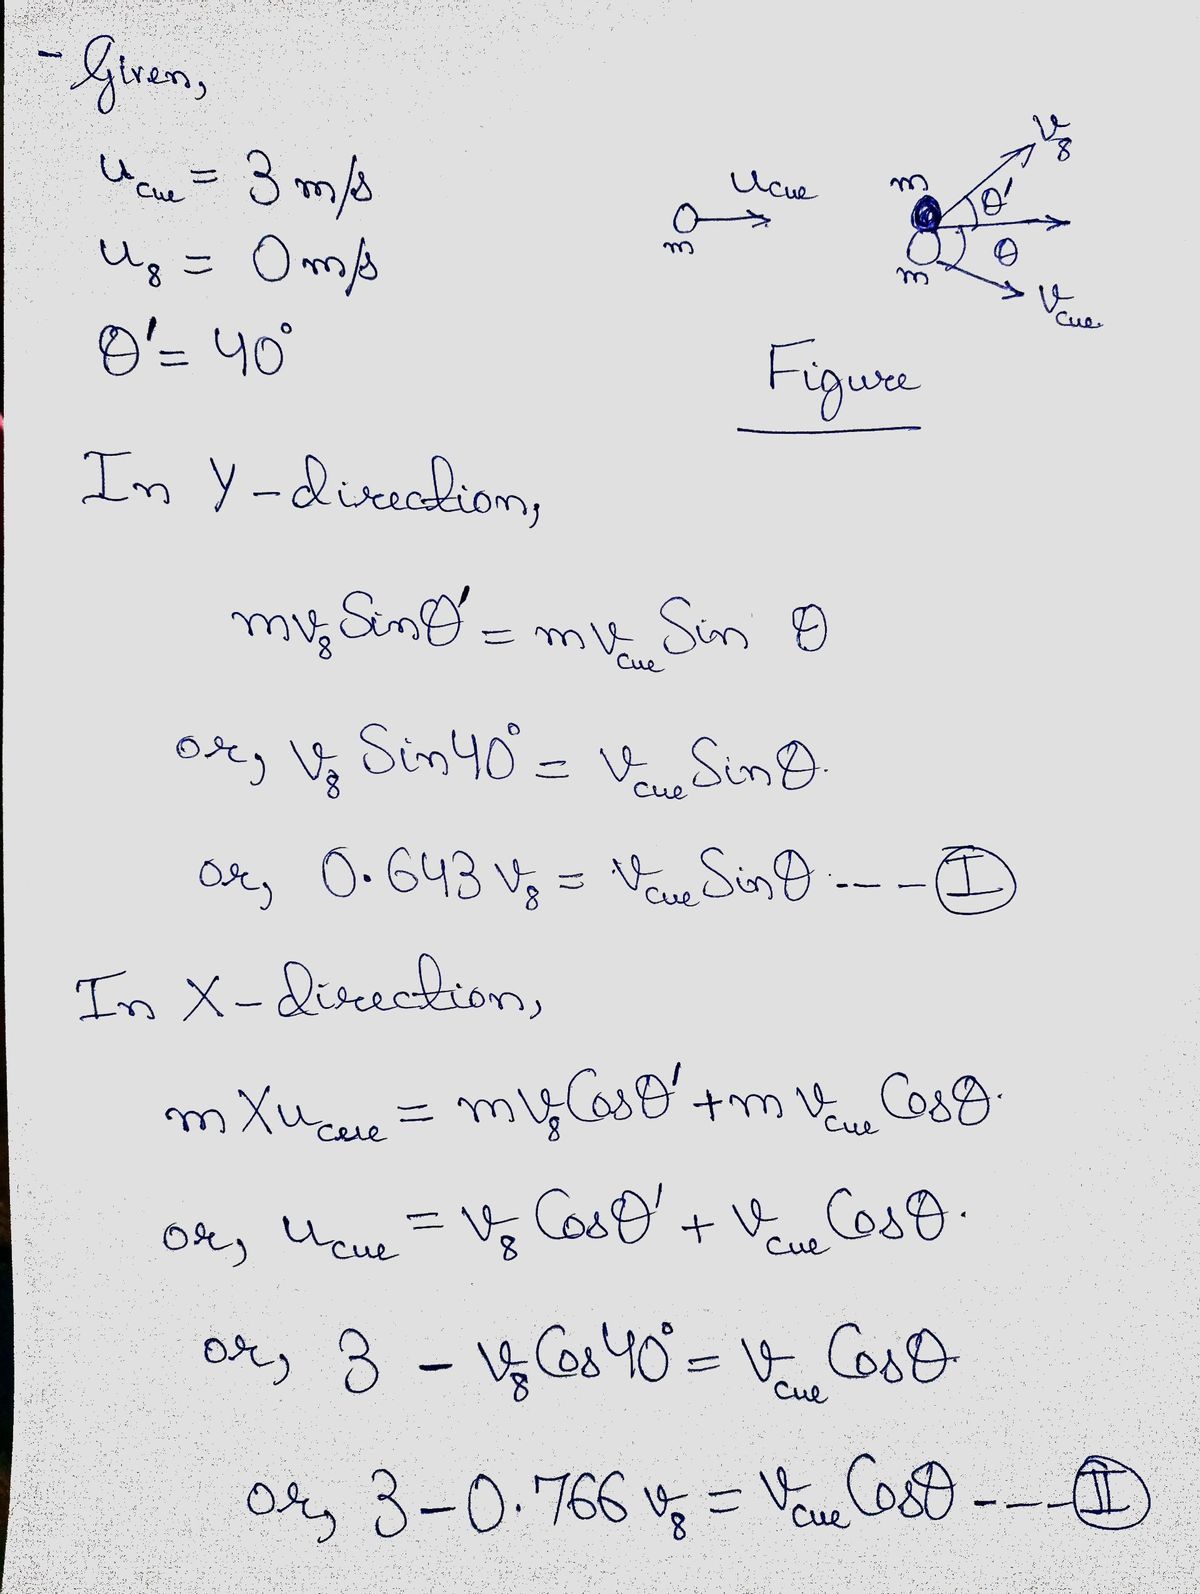 - Given,
u_cue = 3 m/s
u_8 = 0 m/s
θ' = 40°
u_cue
m
m
v_8
θ'
θ
m
v_cue.
Figure
In Y-direction,
mv_8 Sinθ' = mv_cue Sin θ
or, v_8 Sin40° = v_cue Sinθ.
or, 0.643 v_8 = v_cue Sinθ ---- I
In X-direction,
m X u_cue = mv_8 Cosθ' + m v_cue Cosθ.
or, u_cue = v_8 Cosθ' + v_cue Cosθ.
or, 3 - v_8 Cos40° = v_cue Cosθ
or, 3 - 0.766 v_8 = v_cue Cosθ ---- II